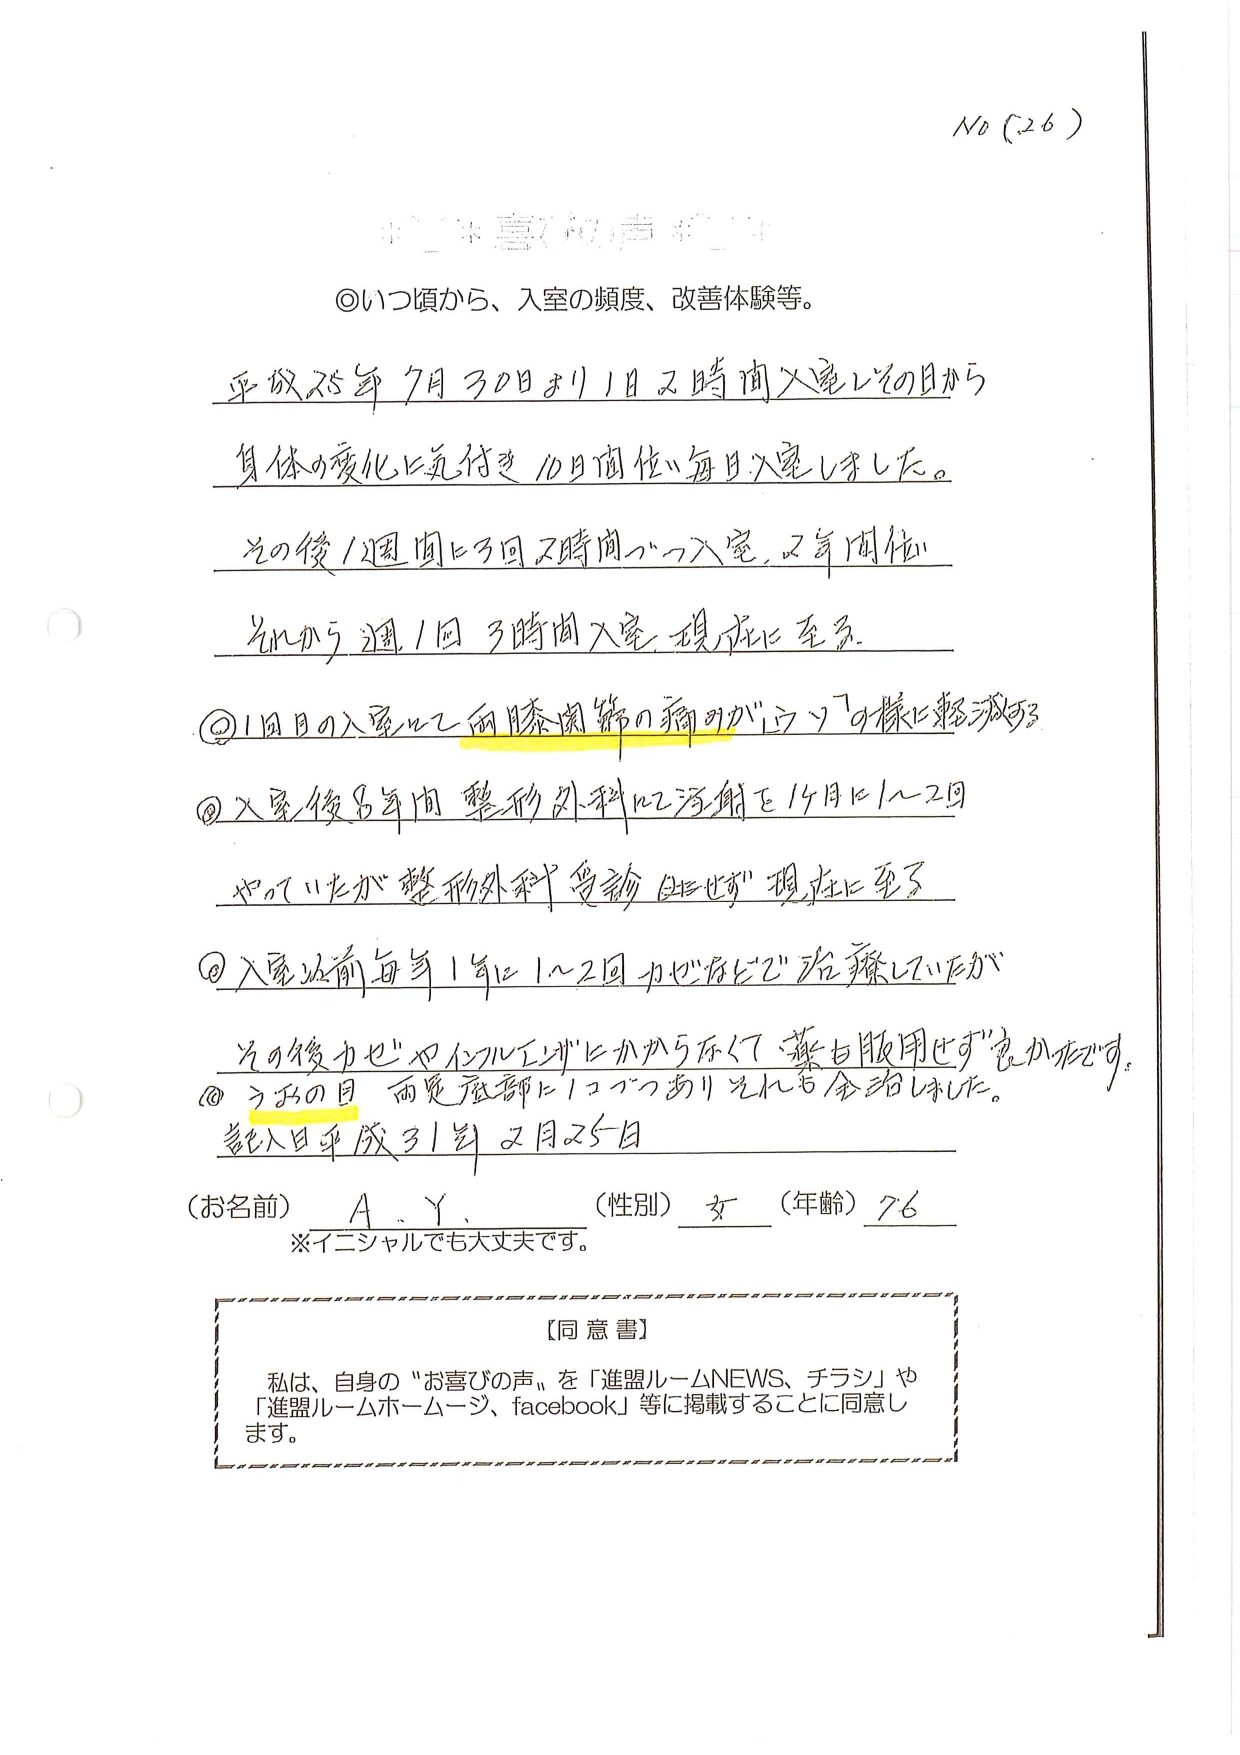 No (26)
◎いつ頃から、入室の頻度、改善体験等。
平成25年7月30日より1日2時間入室しその日から
身体の変化に気付き10日間位い毎日入室しました。
その後1週間に3回2時間づつ入室、2年間位い
それから週1回3時間入室、現在に至る。
◎1回目の入室にて両膝関節の痛みが「ウソ」の様に軽減する
◎入室後8年間 整形外科にて注射を1ケ月に1〜2回
やっていたが整形外科受診はせず現在に至る
◎入室以前毎年1年に1〜2回カゼなどで治療していたが
その後カゼやインフルエンザにかからなくて薬も服用せず良かったです。
◎うおの目 両足底部に1コづつありそれも全治しました。
記入日平成31年2月25日
(お名前) A.Y. (性別) 女 (年齢) 76
※イニシャルでも大丈夫です。
【同意書】
私は、自身の〝お喜びの声〟を「進盟ルームNEWS、チラシ」や
「進盟ルームホームージ、facebook」等に掲載することに同意し
ます。